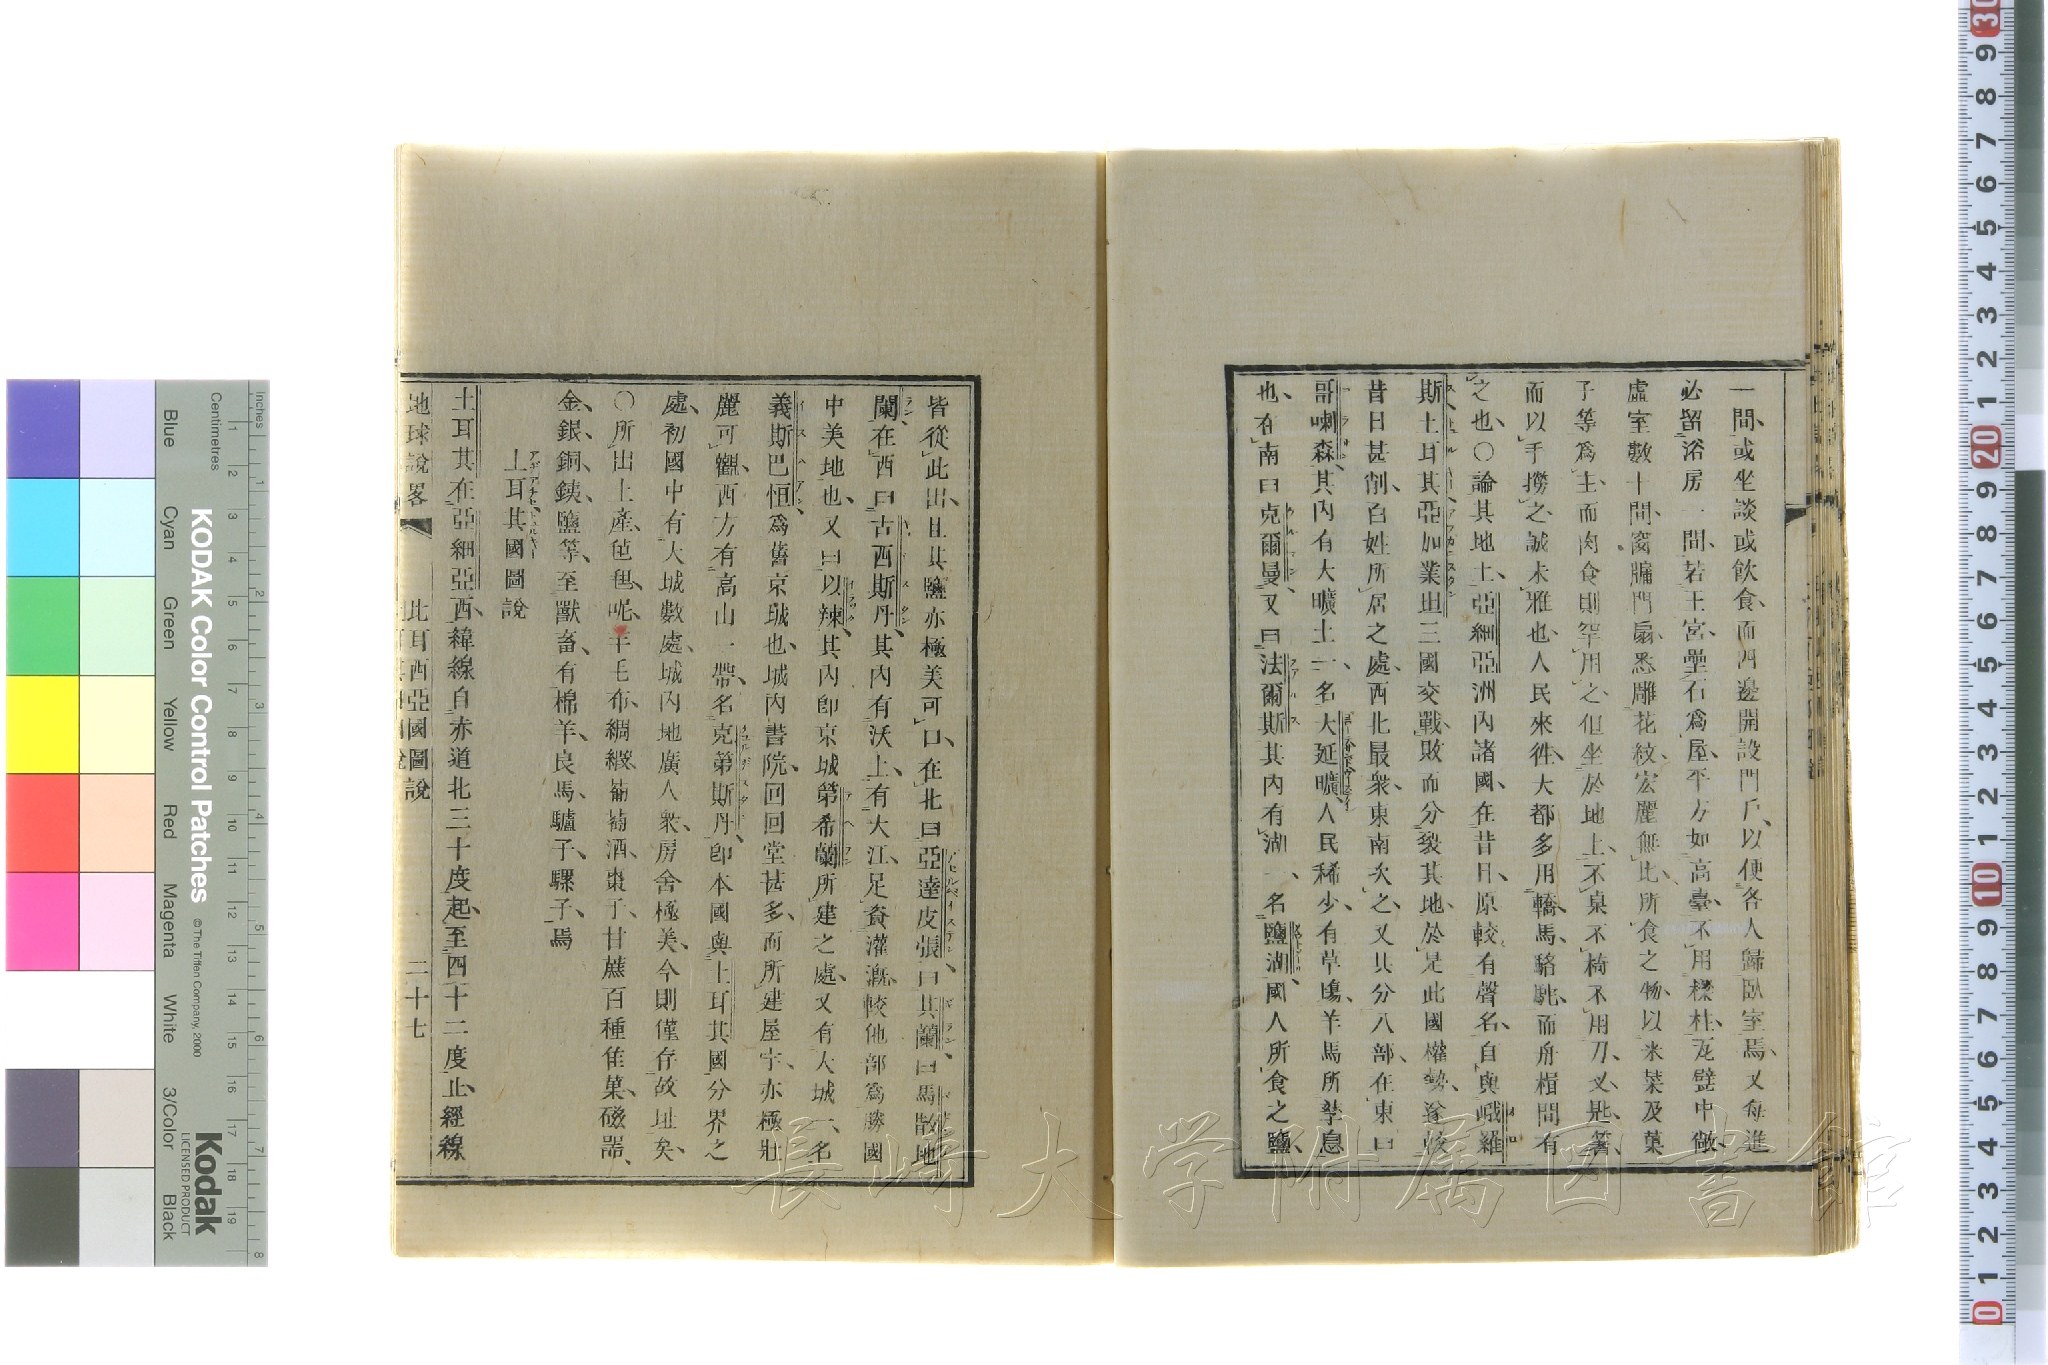 一間或坐談或飲食而四邊開設門戶以便各人歸臥室焉又每進
必留浴房一間若王宮壘石爲屋平方如高臺不用樑柱瓦甓中敞
虛室數十間窗牖門扇悉雕花紋宏麗無比所食之物以米菜及菓
子等爲主而肉食則罕用之但坐於地上不桌不椅不用刀叉匙箸
而以手撈之誠未雅也人民來徃大都多用轎馬駱駝而舟楫間有
之也〇論其地土亞細亞洲內諸國在昔日原較有聲名自與峨羅
斯土耳其亞加業坦三國交戰敗而分裂其地於是此國權勢遂較
昔日甚削百姓所居之處西北最衆東南次之又其分八部在東曰
哥喇森其內有大曠土一名大延曠人民稀少有草塲羊馬所孳息
也在南曰克爾曼又曰法爾斯其內有湖一名鹽湖國人所食之鹽
皆從此出且其鹽亦極美可口在北曰亞達皮張曰其蘭曰馬散地
蘭在西曰古西斯丹其內有沃土有大江足資灌漑較他部爲勝國
中美地也又曰以辣其內卽京城第希蘭所建之處又有大城一名
義斯巴恒爲舊京城也城內書院回回堂甚多而所建屋宇亦極壯
麗可觀西方有高山一帶名克第斯丹卽本國與土耳其國分界之
處初國中有大城數處城內地廣人衆房舍極美今則僅存故址矣
〇所出土產毡毯呢羊毛布綢緞葡萄酒棗子甘蔗百種佳菓磁器
金銀銅銕鹽等至獸畜有棉羊良馬驢子騾子焉
土耳其國圖說
土耳其在亞細亞西緯線自赤道北三十度起至四十二度止經線
地球說畧 比耳西亞國圖說 二十七